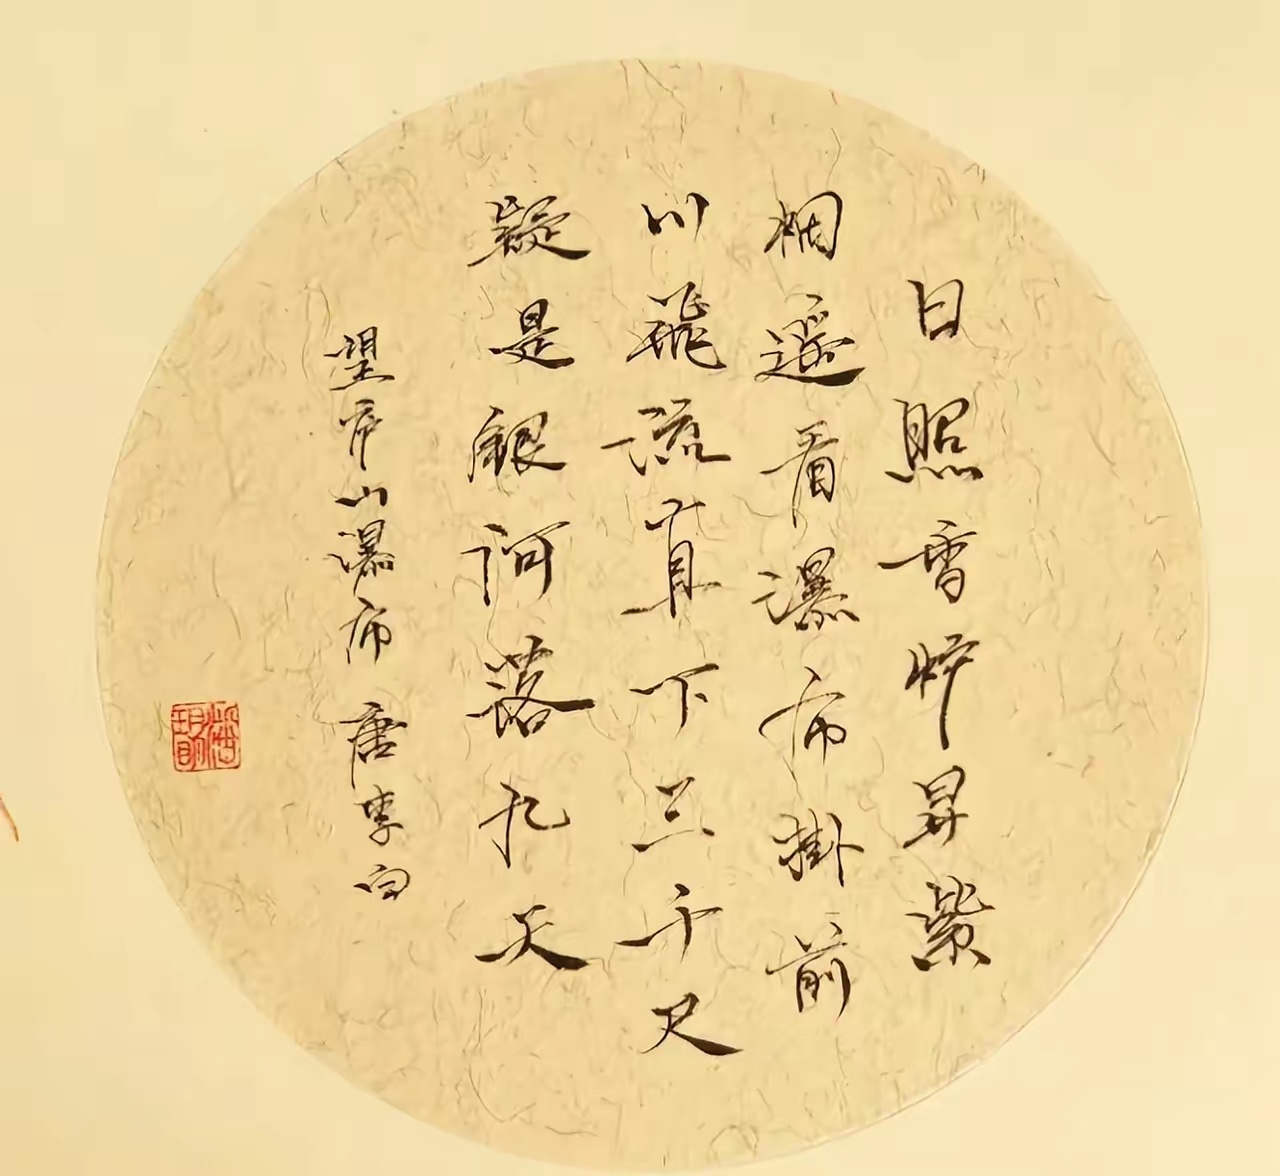 日照香炉昇紫
烟遥看瀑布掛前
川飛流直下三千尺
疑是銀河落九天
望庐山瀑布 唐李白